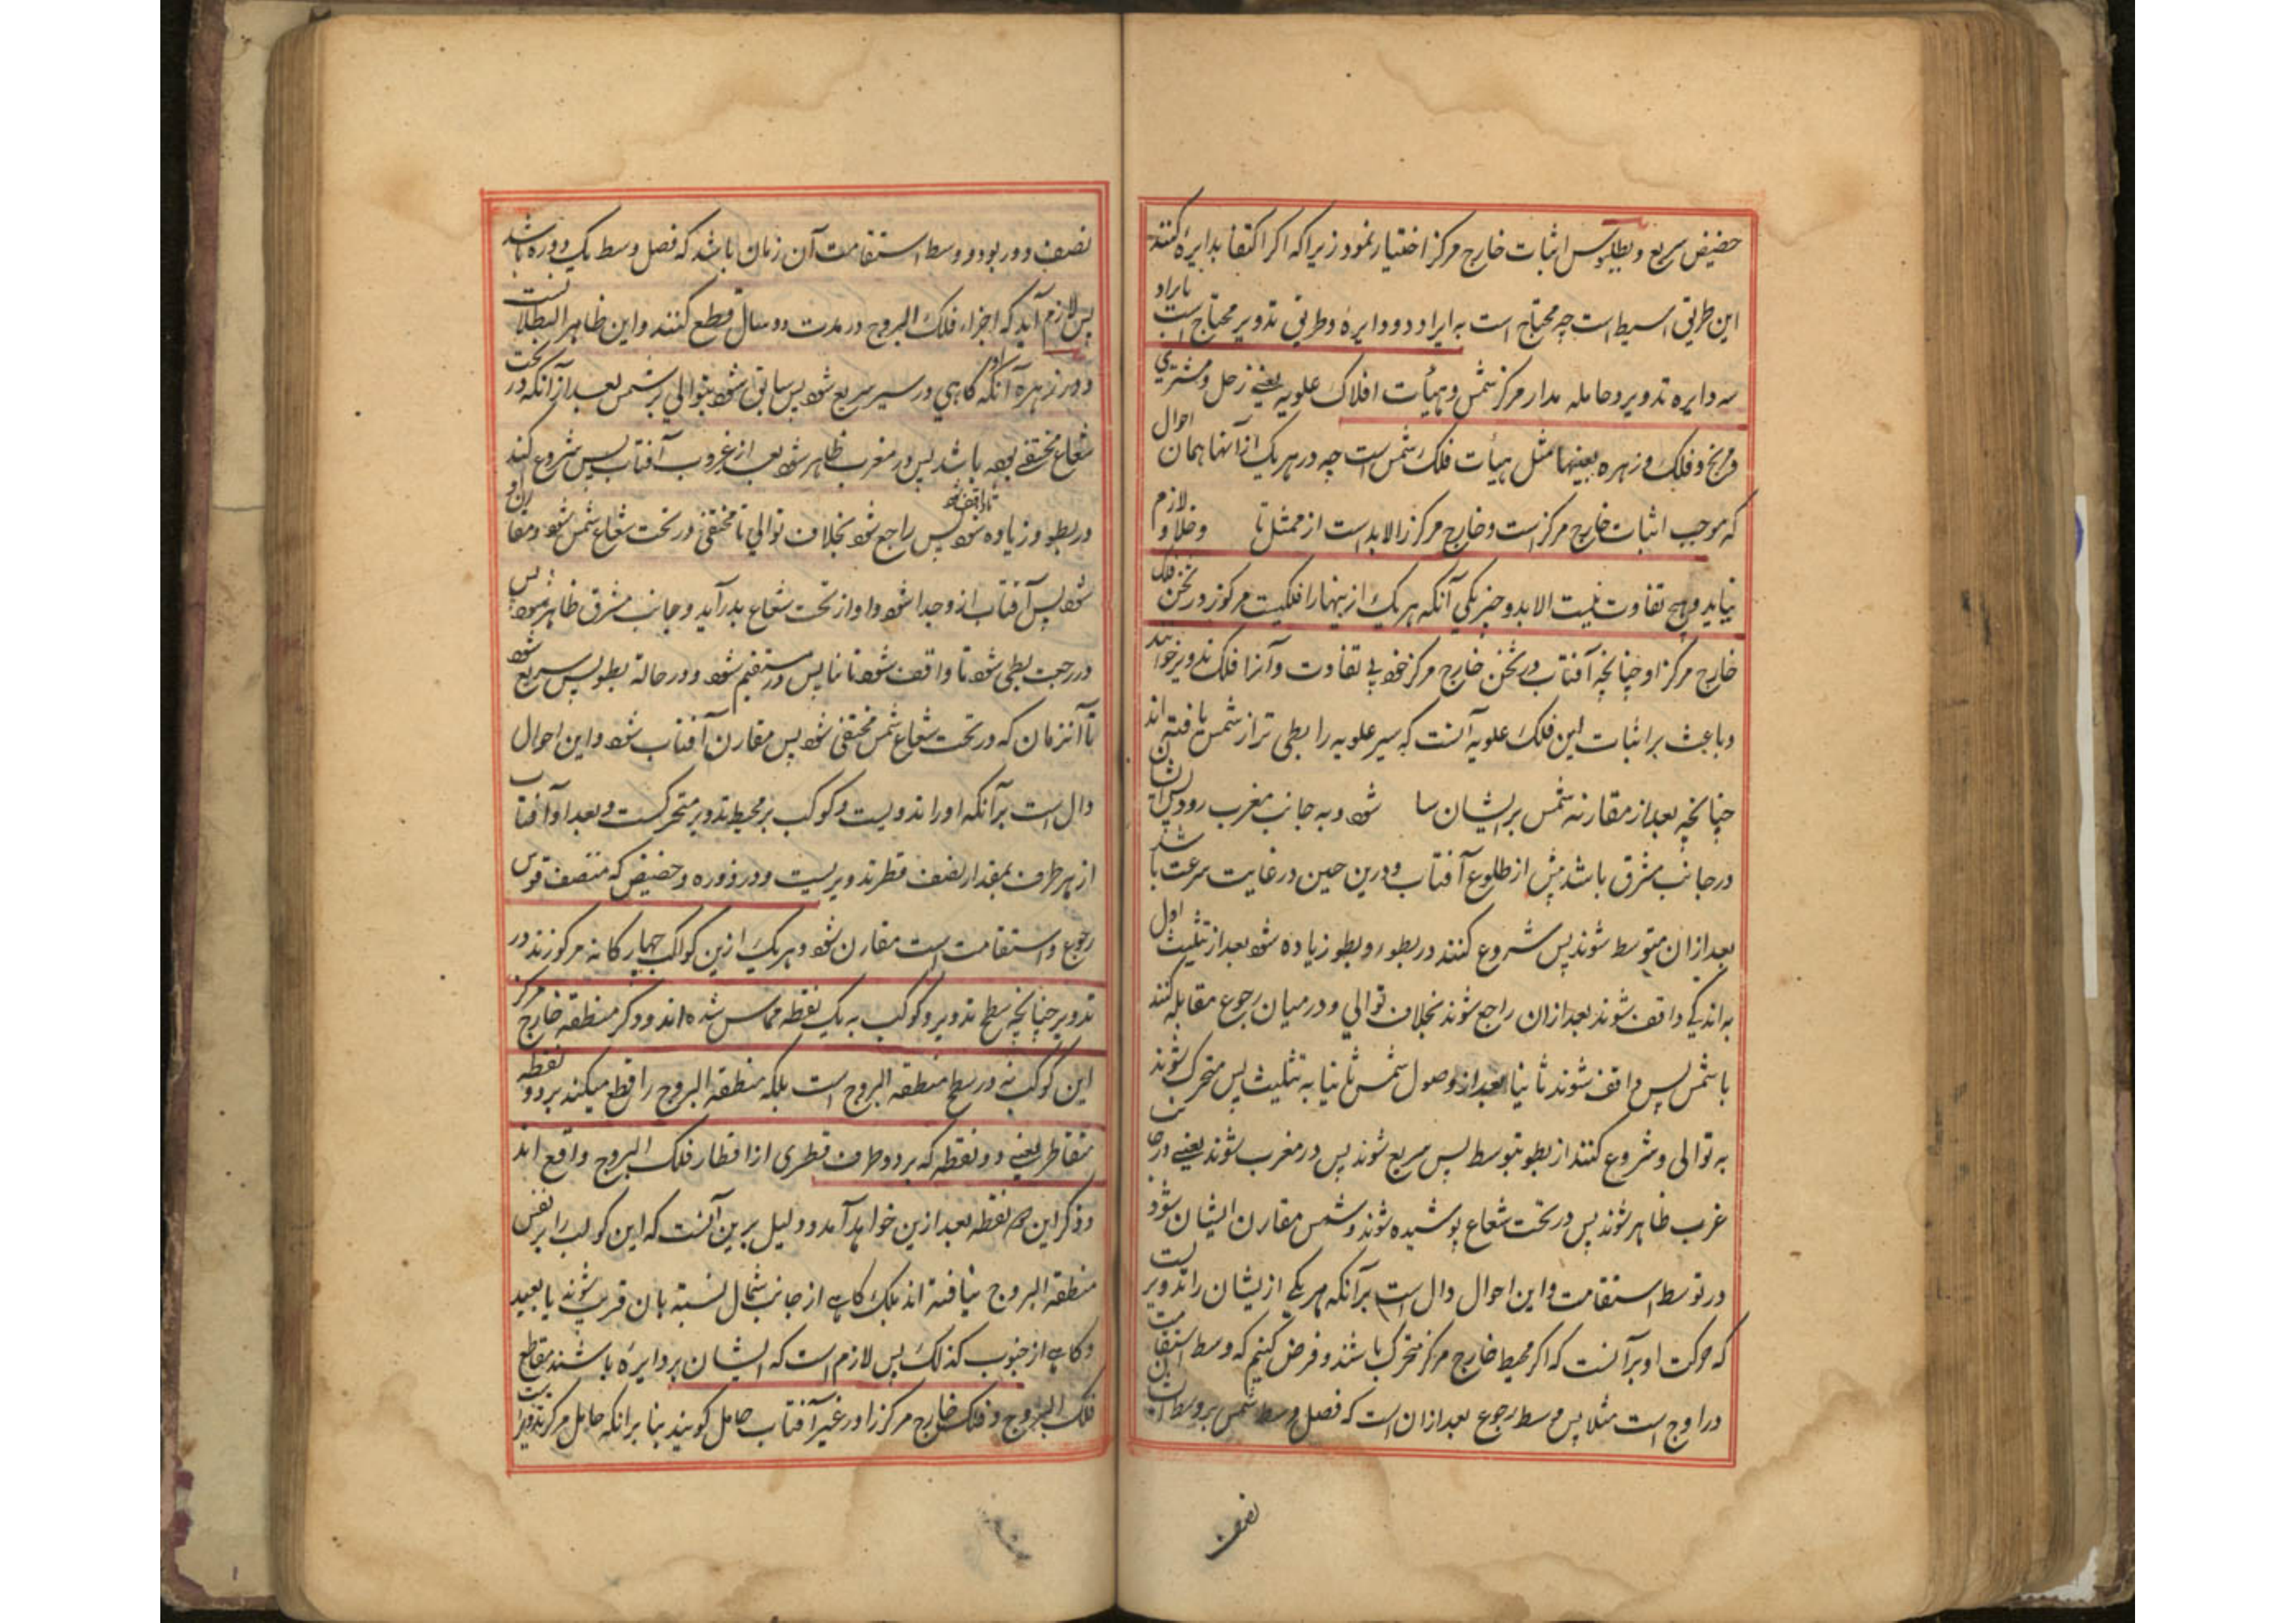 حضیض سریع و بطلمیوس اثبات خارج مرکز اختیار نمود زیرا که اگر اکتفا بدایره کنند
این طریق بسیط است چه محتاج است به ایراد دو دایره و طریق تدویر محتاج است بایراد
سه دایره تدویر و حامله مدار مرکز شمس و هیأت افلاک علویه یعنے زحل و مشتری
و مریخ و فلک زهره بعینها مثل هیأت فلک شمس است چه در هر یک از آنها همان احوال
که موجب اثبات خارج مرکز است و خارج مرکز را لابد است از ممثل تا وخلا و لازم
نیاید و هیچ تفاوت نیست الا بدو چیز یکی آنکه هر یک ازینها را فلکیست مرکوز در ثخن فلک
خارج مرکز او چنانچه آفتاب در ثخن خارج مرکز خود بے تفاوت و آنرا فلک تدویر خوانند
و باعث بر اثبات این فلک علویه آنست که سیر علویه را بطی تر از شمس یافته اند
چنانچه بعد از مقارنه شمس بر ایشان سا شود و به جانب مغرب رود پس ایشان
در جانب مشرق باشد پیش از طلوع آفتاب و درین حین در غایت سرعت باشد
بعد ازان متوسط شوند پس شروع کنند در بطوء و بطو زیاده شود بعد از تثلیث اول
به اندکی واقف شوند بعد ازان راجع شوند بخلاف توالی و در میان رجوع مقابله کنند
با شمس پس واقف شوند ثانیا بعد از وصول شمس ثانیا به تثلیث پس متحرک شوند
به توالی و شروع کنند از بطو بتوسط پس سریع شوند پس در مغرب شوند یعنے در جانب
غرب ظاهر شوند پس در تحت شعاع پوشیده شوند و شمس مقارن ایشان شود
در توسط استقامت و این احوال دال است برآنکه هر یکے ازیشان را تدویریست
که حرکت او بر آنست که اگر محیط خارج مرکز متحرک باشد و فرض کنیم که وسط استقامت
در اوج است مثلا پس وسط رجوع بعد ازان است که فصل وسط شمس بر وسط
نصف
نصف دور بود و وسط استقامت آن زمان باشد که فصل وسط یک دوره باشد
پس لازم آید که اجزاء فلک البروج در مدت دو سال قطع کنند و این ظاهر البطلانست
و در زهره آنکه گاهی در سیر سریع شود پس سابق شود بتوالی بر شمس بعد از آنکه در تحت
شعاع مختفے بوده باشد پس در مغرب ظاهر شود بعد از غروب آفتاب پس شروع کند
در بطوء و زیاده شود تا واقف شود پس راجع شود بخلاف توالی تا مختفی در تحت شعاع شمس شود و مقارن او
شود پس آفتاب ازو جدا شود و او از تحت شعاع بدر آید و جانب مشرق ظاهر شود پس
در رجعت بطی شود تا واقف شود ثانیا پس مستقیم شود و در حالة بطو پس سریع شود
تا آنزمان که در تحت شعاع شمس مختفی شود پس مقارن آفتاب شود و این احوال
دال است برآنکه او را تدویریست و کوکب بر محیط تدویر متحرکست و بعد او از آفتاب
از هر طرف بمقدار نصف قطر تدویریست و در ذروه و حضیض که منتصف قوس
رجوع و استقامت است مقارن شود و هر یک ازین کواکب چهارگانه مرکوزند در
تدویر چنانچه سطح تدویر و کوکب به یک نقطه مماس شده اند و دگر منطقه خارج مرکز
این کوکب نه در سطح منطقه البروج است بلکه منطقه البروج را قطع میکند بر دو نقطه
متقاطر یعنے دو نقطه که بر دو طرف قطری از اقطار فلک البروج واقع اند
و ذکر این دو نقطه بعد ازین خواهد آمد و دلیل برین آنست که این کوکب را بر نفس
منطقه البروج نیافته اند بلک گاهے از جانب شمال نسبة بان قریب شوند یا بعید
و گاهے از جنوب کذلک پس لازم است که ایشان بر دایره باشند مقاطع
فلک البروج و فلک خارج مرکز را در غیر آفتاب حامل گویند بنا برانکه حامل مرکز تدویر است